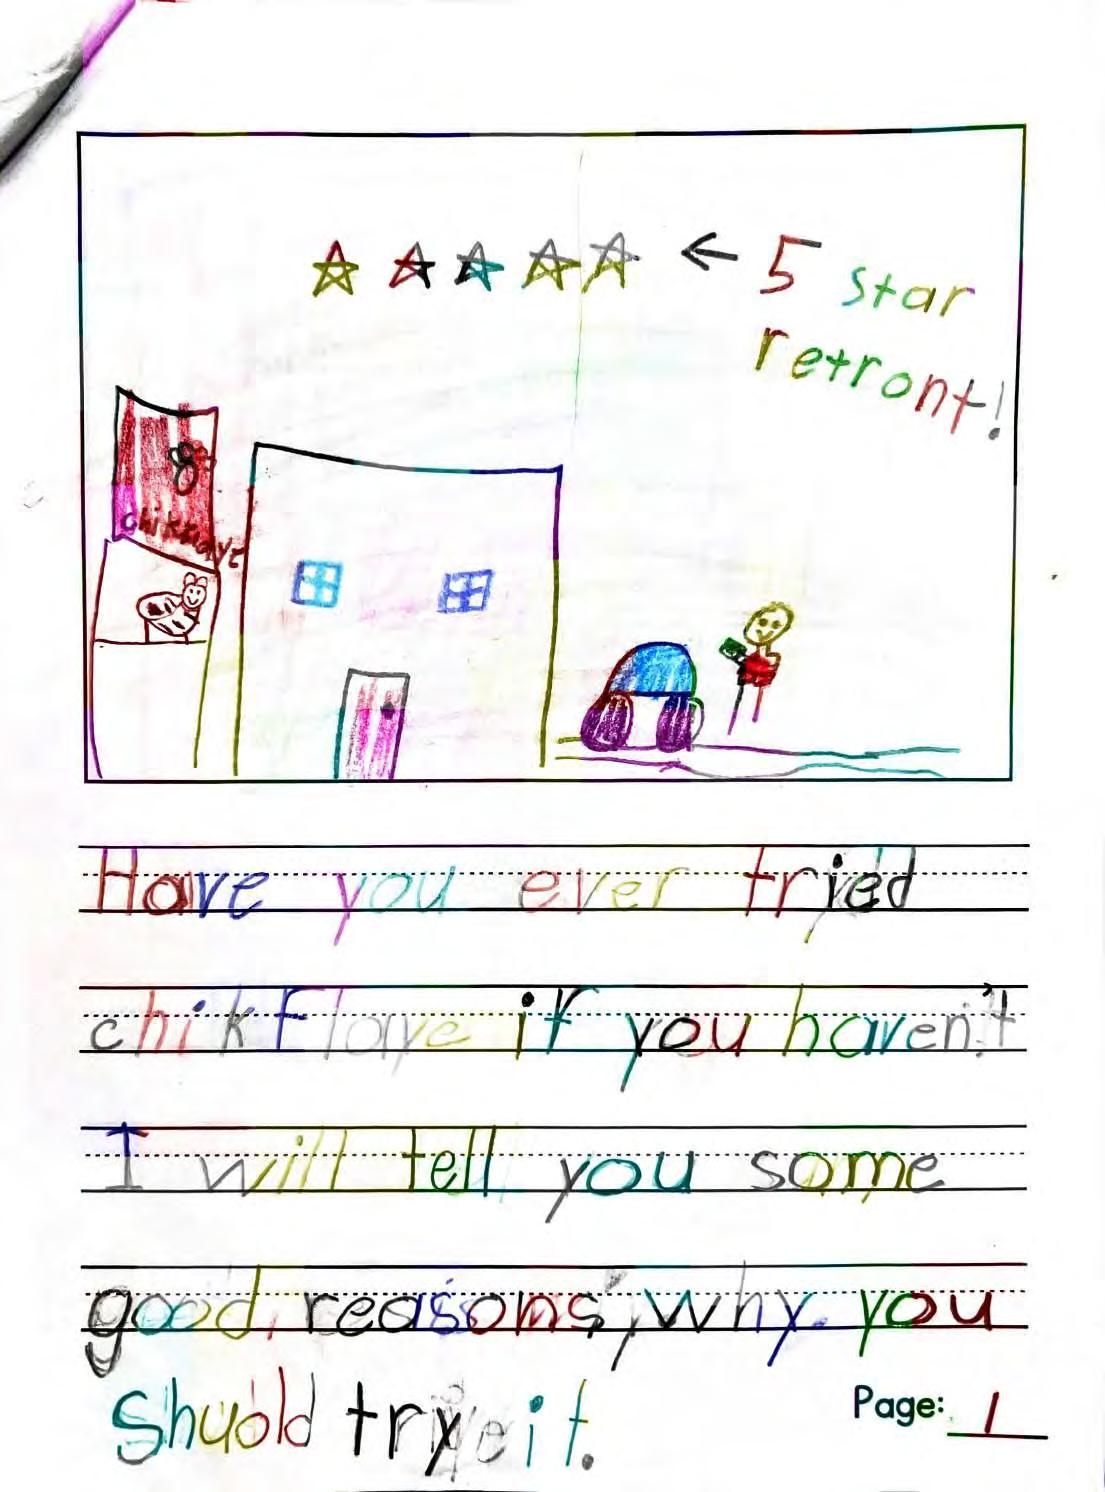 5 star
retront!
chikflaye
Have you ever tried
chikFlaye if you haven't
I will tell you some
good reasons, why you
Shuold try it.
Page: 1